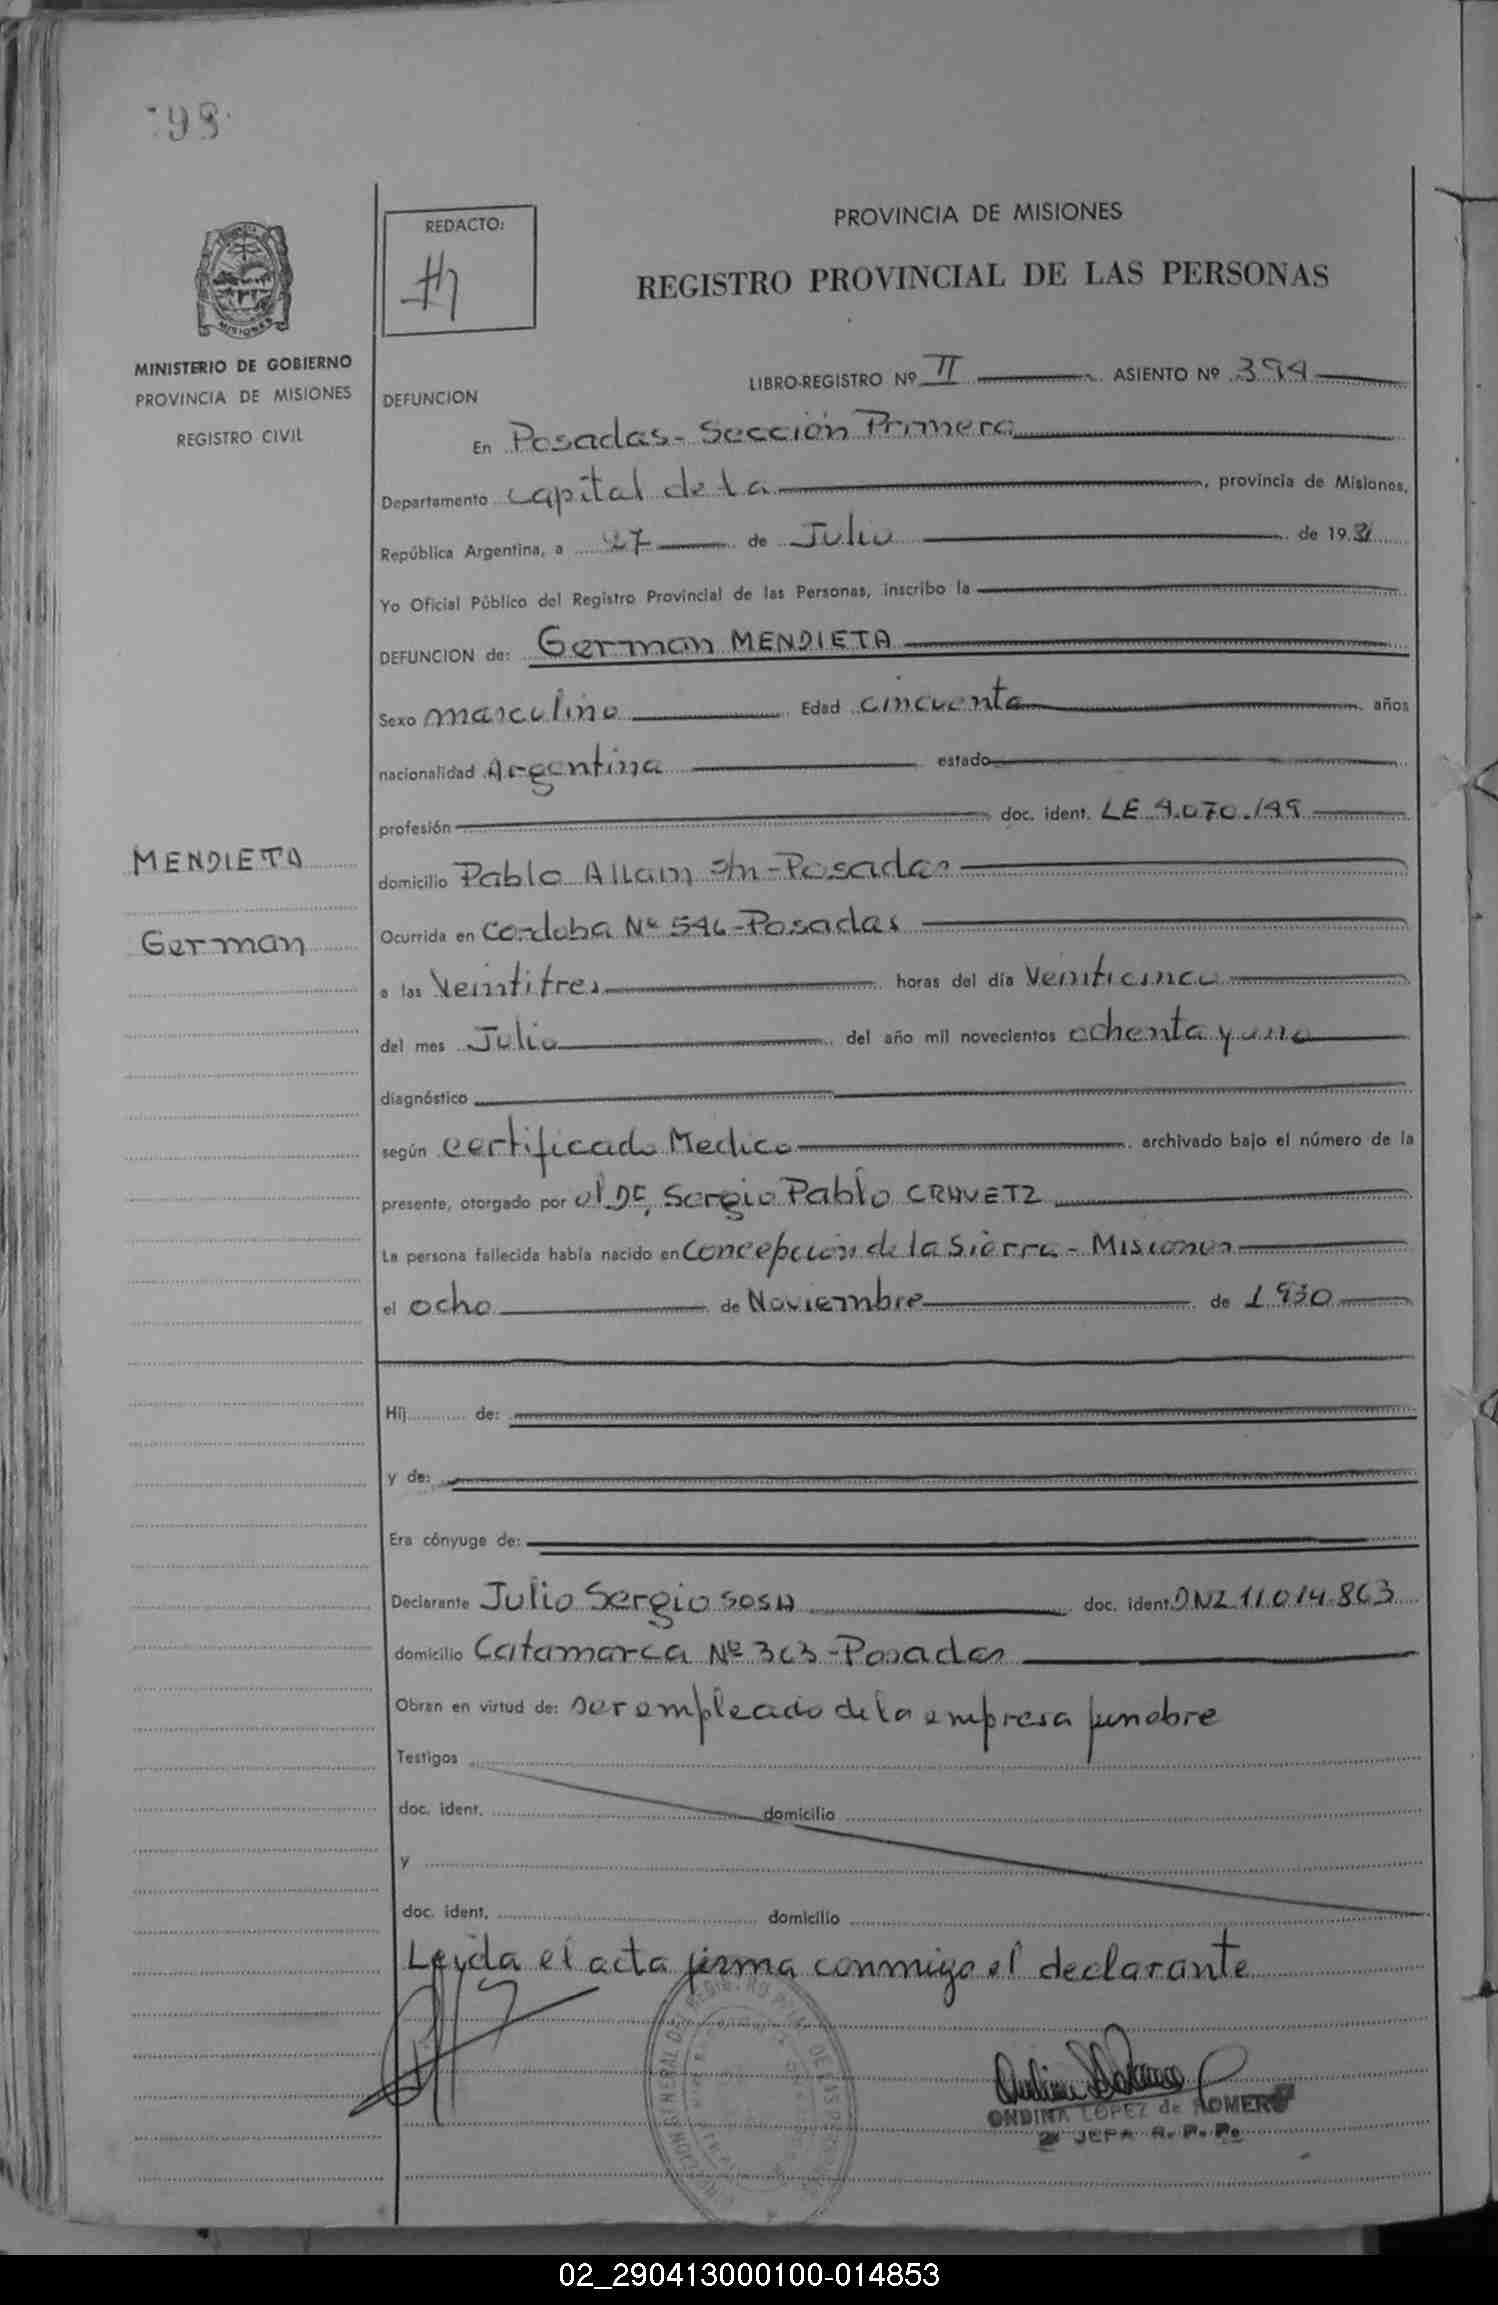 98
REDACTO:
PROVINCIA DE MISIONES
REGISTRO PROVINCIAL DE LAS PERSONAS
MISIONES
MINISTERIO DE GOBIERNO
PROVINCIA DE MISIONES
REGISTRO CIVIL
LIBRO-REGISTRO Nº II ASIENTO Nº 394
DEFUNCION
En Posadas - Sección Primera
Departamento Capital de la, provincia de Misiones,
República Argentina, a 27 de Julio de 1981
Yo Oficial Público del Registro Provincial de las Personas, inscribo la
DEFUNCION de: German MENDIETA
Sexo masculino Edad cincuenta años
nacionalidad Argentina estado
profesión doc. ident. LE 4.070.149
MENDIETA
domicilio Pablo Allain s/n - Posadas
German
Ocurrida en Cordoba Nº 546 - Posadas
a las Veintitres horas del día Veinticinco
del mes Julio del año mil novecientos ochenta y uno
diagnóstico
según certificado Medico archivado bajo el número de la
presente, otorgado por el Dr, Sergio Pablo CRAVETZ
La persona fallecida había nacido en Concepcion de la Sierra - Misiones
el ocho de Noviembre de 1930
Hij de:
y de:
Era cónyuge de:
Declarante Julio Sergio SOSA doc. ident. DNI 11.014.863
domicilio Catamarca Nº 363 - Posadas
Obran en virtud de: ser empleado de la empresa funebre
Testigos
doc. ident. domicilio
y
doc. ident. domicilio
Leida el acta firma conmigo el declarante
ONDINA LOPEZ de ROMERO
JEFA R. P. P.
02_290413000100-014853